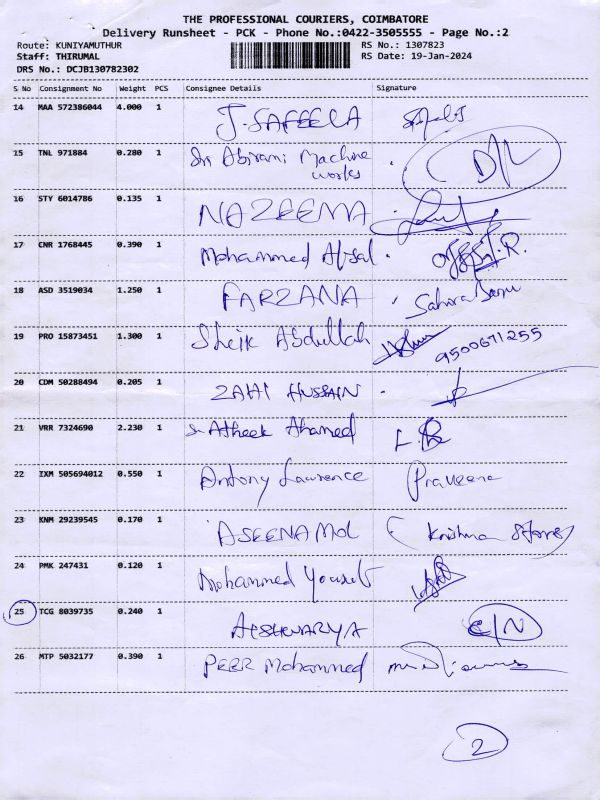 THE PROFESSIONAL COURIERS, COIMBATORE
Delivery Runsheet - PCK - Phone No.:0422-3505555 - Page No.:2
Route: KUNIYAMUTHUR RS No.: 1307823
Staff: THIRUMAL RS Date: 19-Jan-2024
DRS No.: DCJB130782302
S No Consignment No Weight PCS Consignee Details Signature
14 MAA 572386044 4.000 1 J. SAFEELA
15 TNL 971884 0.280 1 Sri Abirami Machine works D/L
16 STY 6014786 0.135 1 NAZEEMA
17 CNR 1768445 0.390 1 Mohammed Afsal
18 ASD 3519034 1.250 1 FARZANA Sahira Banu
19 PRO 15873451 1.300 1 Sheik Abdullah 9500671255
20 CDM 50288494 0.205 1 ZAHI HUSSAIN
21 VRR 7324690 2.230 1 Atheek Ahamed
22 IXM 505694012 0.550 1 Antony Lawrence Praveena
23 KNM 29239545 0.170 1 ASEENA MOL Krishna Stores
24 PMK 247431 0.120 1 Mohammed Yousuf
25 TCG 8039735 0.240 1 AISHWARYA C/N
26 MTP 5032177 0.390 1 PEER Mohammed
2